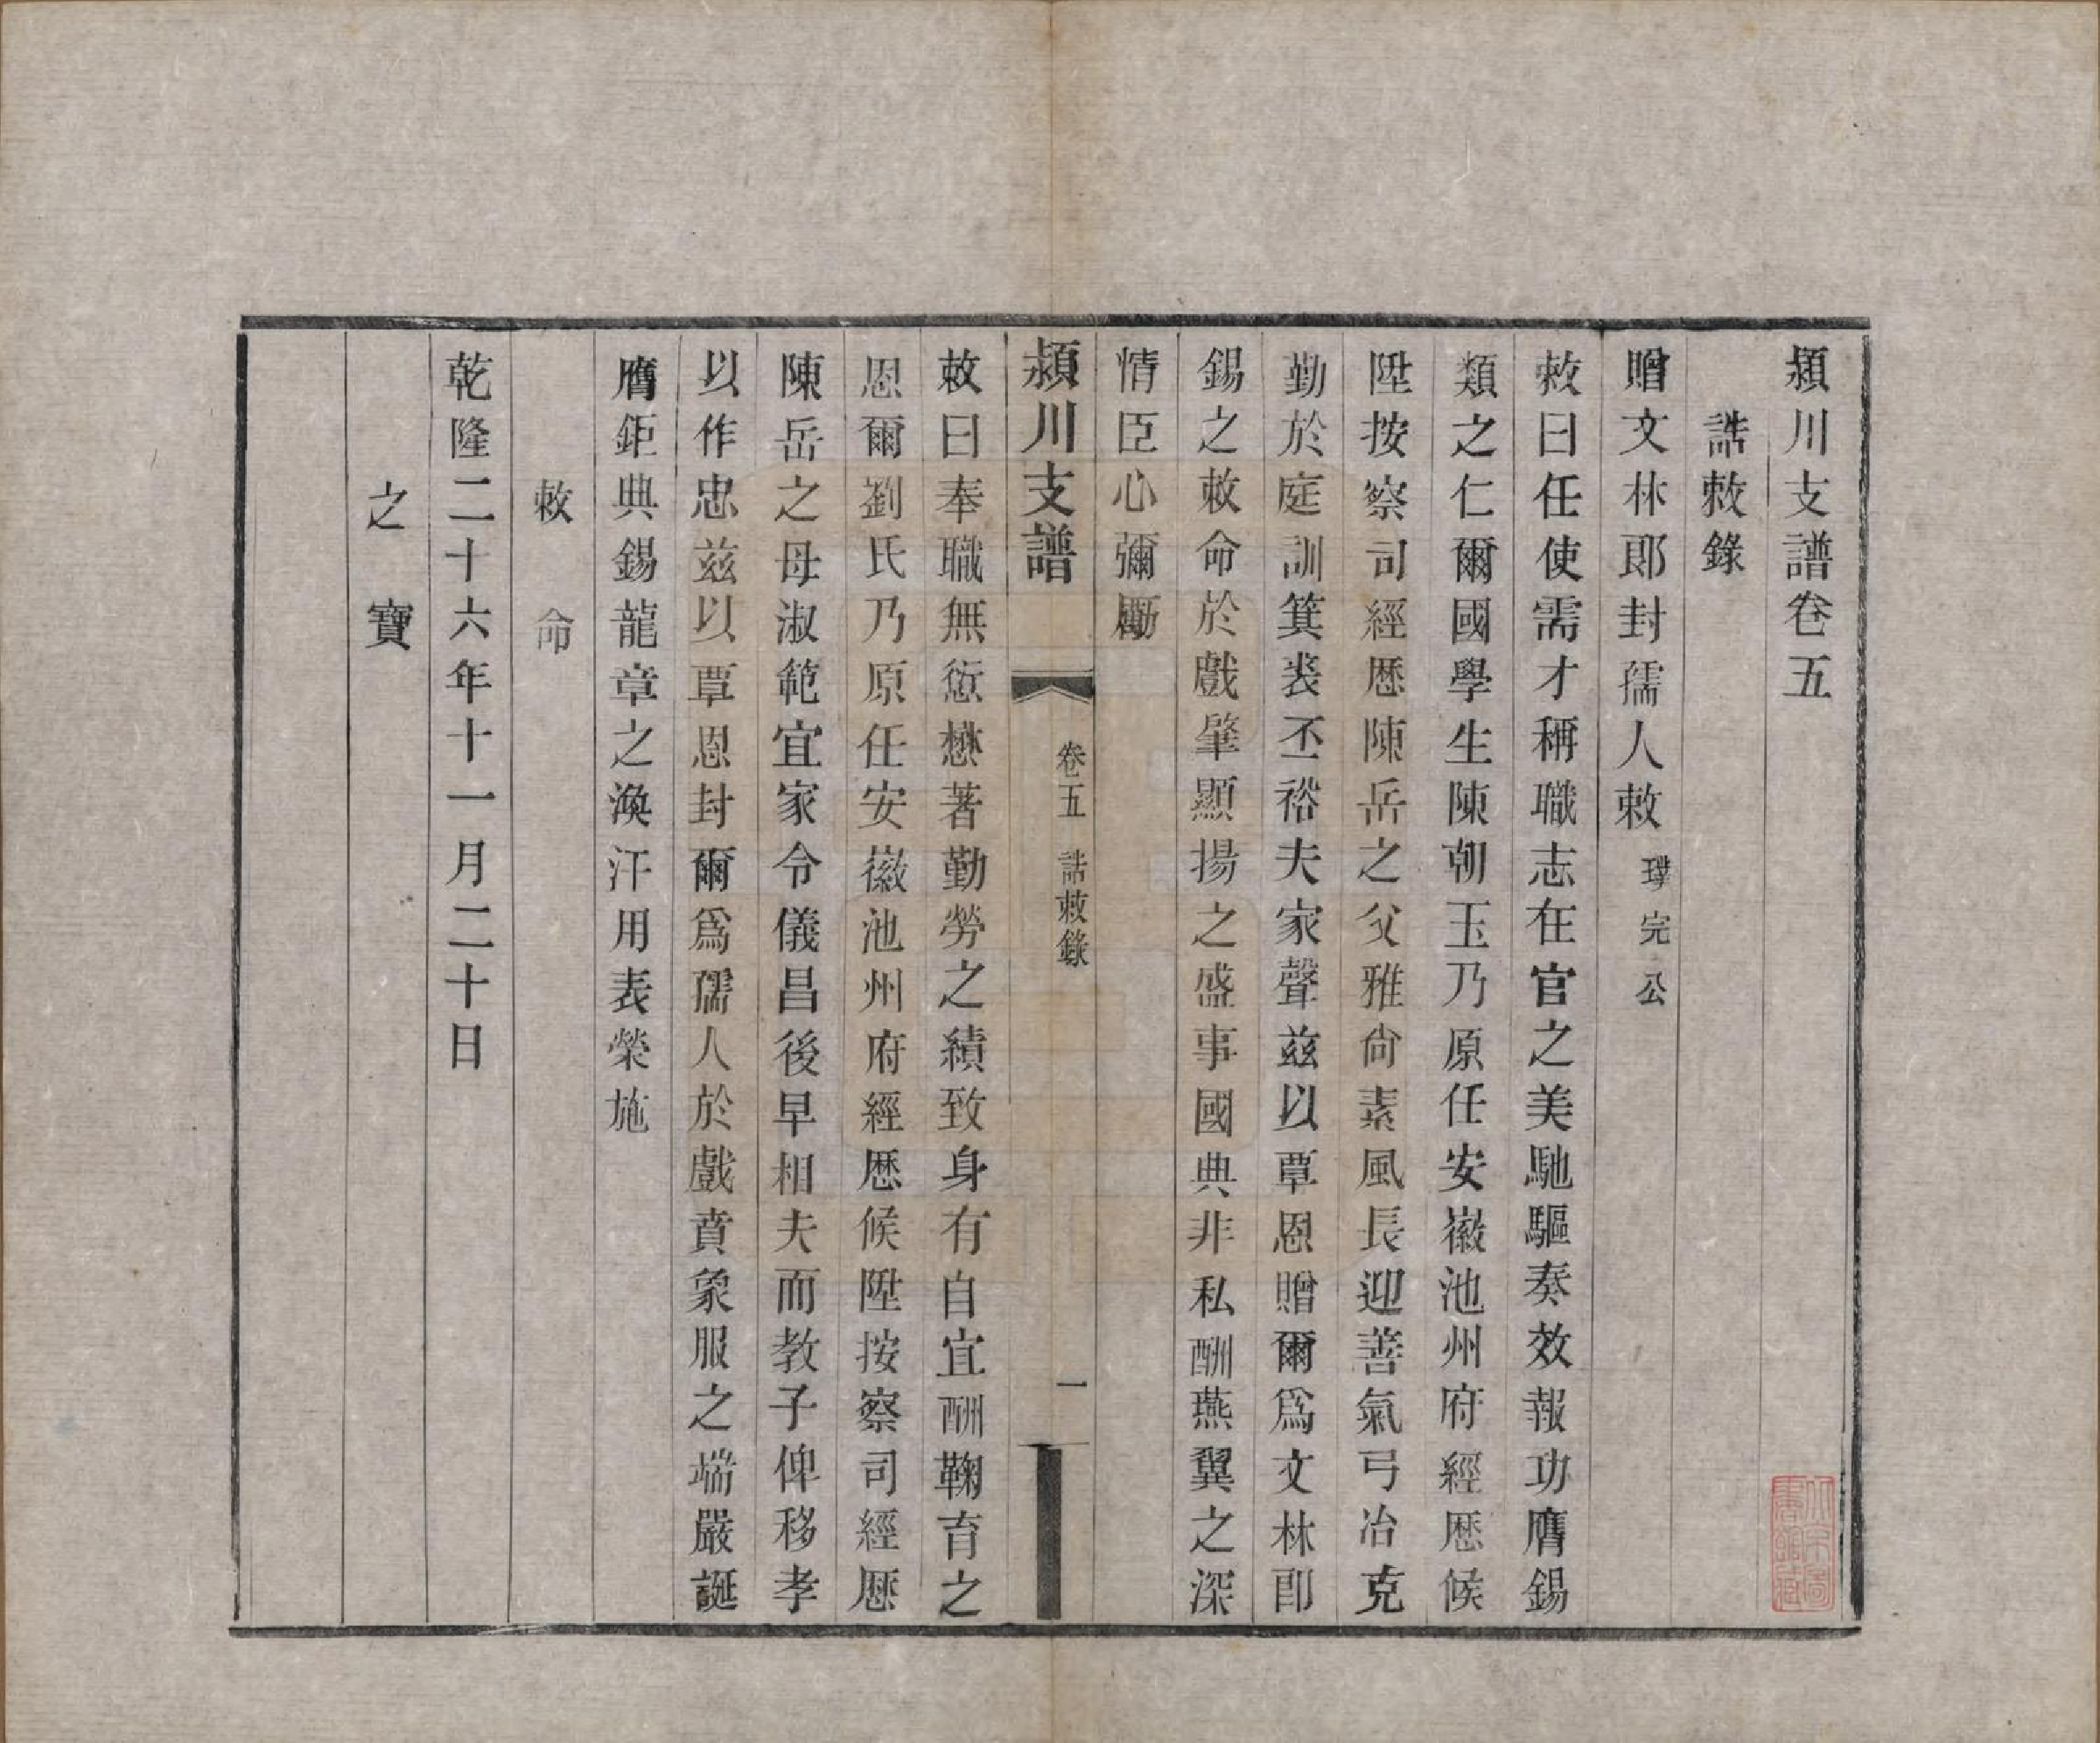 潁川支譜卷五
誥敕錄
贈文林郎封孺人敕 璞完公
敕曰任使需才稱職志在官之美馳驅奏效報功膺錫
類之仁爾國學生陳朝玉乃原任安徽池州府經歷候
陞按察司經歷陳岳之父雅尙素風長迎善氣弓冶克
勤於庭訓箕裘丕裕夫家聲兹以覃恩贈爾爲文林郎
錫之敕命於戲肇顯揚之盛事國典非私酬燕翼之深
情臣心彌勵
潁川支譜 卷五 誥敕錄 一
敕曰奉職無愆懋著勤勞之績致身有自宜酬鞠育之
恩爾劉氏乃原任安徽池州府經歷候陞按察司經歷
陳岳之母淑範宜家令儀昌後早相夫而教子俾移孝
以作忠兹以覃恩封爾爲孺人於戲賁象服之端嚴誕
膺鉅典錫龍章之渙汗用表榮施
敕命
乾隆二十六年十一月二十日
之寶